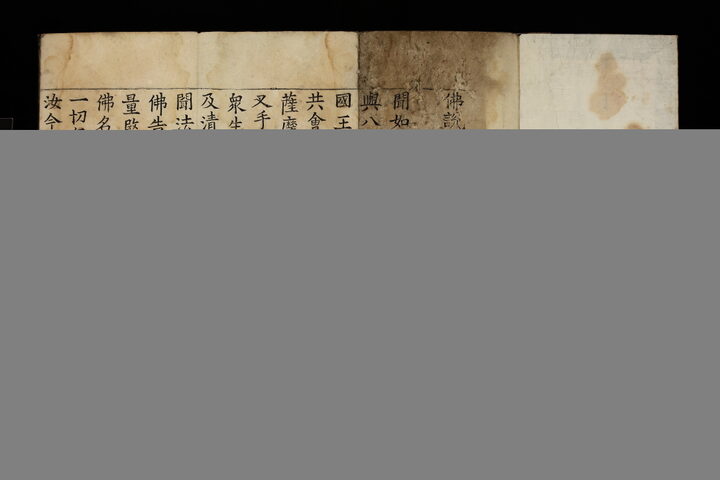 佛說
聞如
與八
國王
共會
薩摩
叉手
衆生
及清
聞法
佛告
量
佛名
一切
汝今